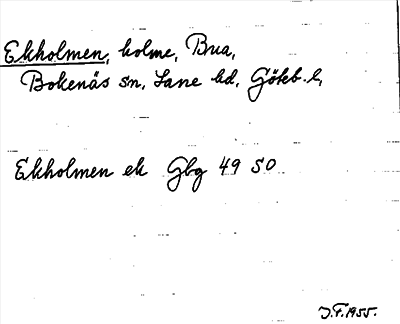 Ekholmen, holme, Bua,
Bokenäs sn, Lane hd, Göteb. l,
Ekholmen ek Gbg 49 SO
J.F. 1955.